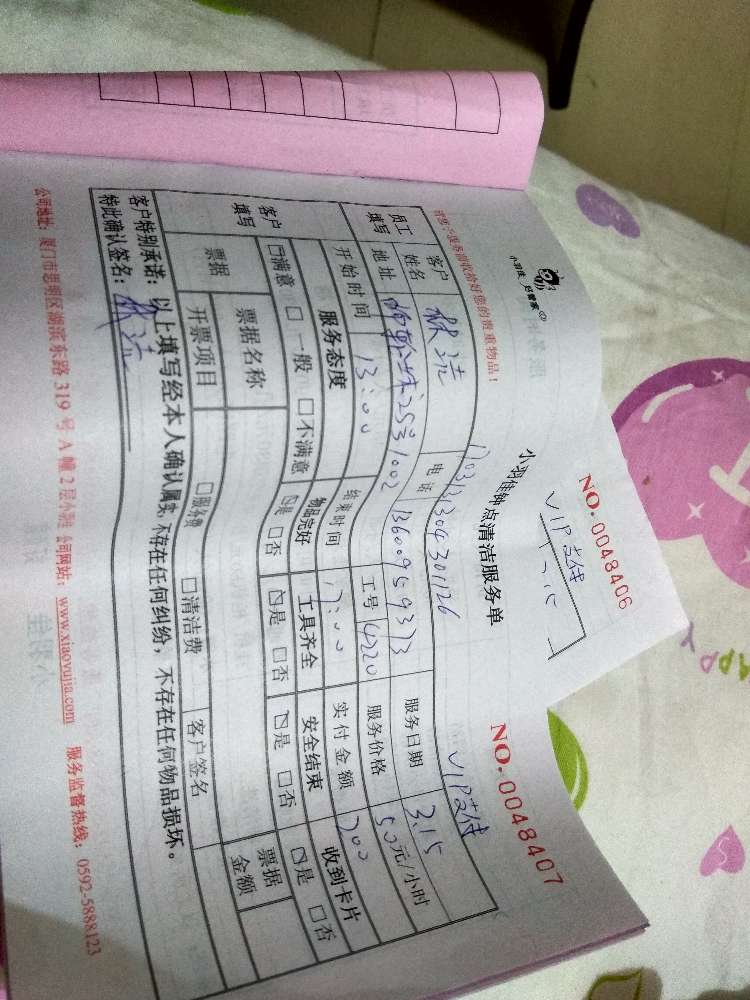 NO. 0048406
VIP支付
小羽佳 好管家
小羽佳钟点清洁服务单
NO. 0048407
VIP支付
1703131304301126
客户姓名 林洁 电话 13609593 服务日期 3.15
地址 25号1002 工号 4220 服务价格 50元/小时
员工填写 开始时间 13:00 结束时间 17:00 实付金额 200
客户填写 服务态度 物品完好 工具齐全 安全结束 收到卡片
☑满意 □一般 □不满意 ☑是 □否 ☑是 □否 ☑是 □否 ☑是 □否
票据 票据名称 票据金额
开票项目 □服务费 □清洁费 客户签名
客户特别承诺：以上填写经本人确认属实，不存在任何纠纷，不存在任何物品损坏。
特此确认签名：林洁
公司地址：厦门市思明区湖滨东路 319 号 A 幢 2 层小羽佳 公司网站：www.xiaoyujia.com 服务监督热线：0592-5888123